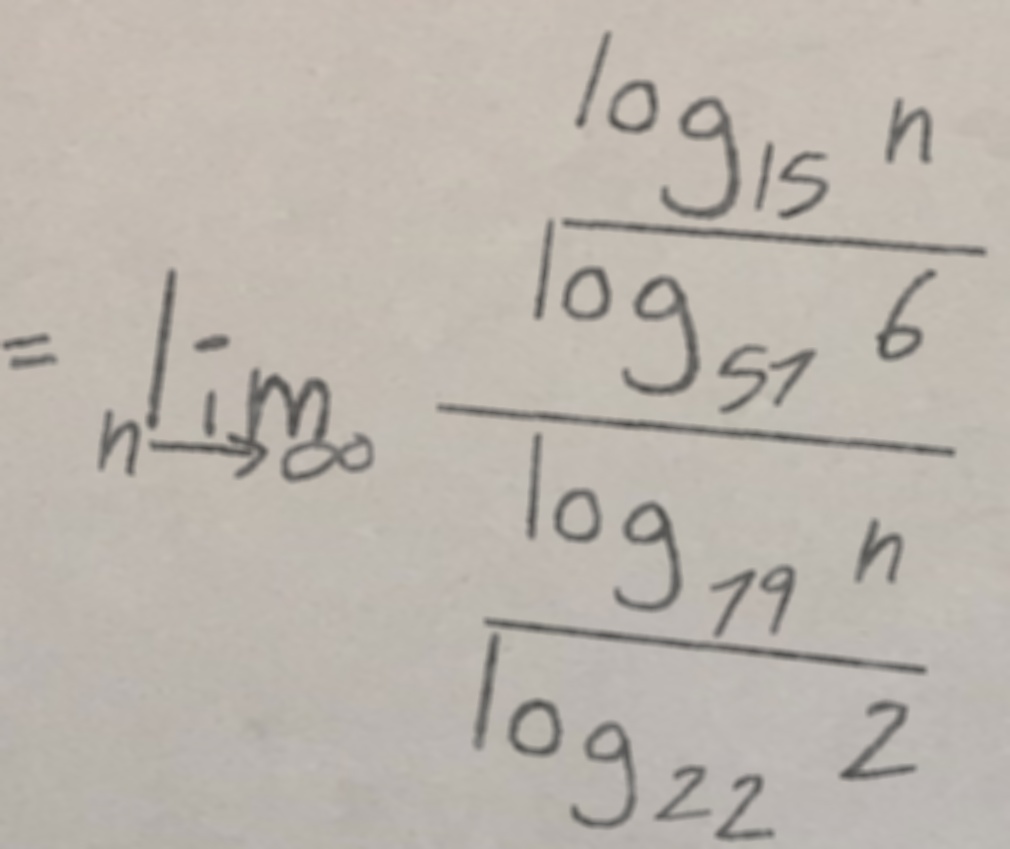 = lim n→∞
log₁₅ n
log₅₁ 6
log₁₉ n
log₂₂ 2